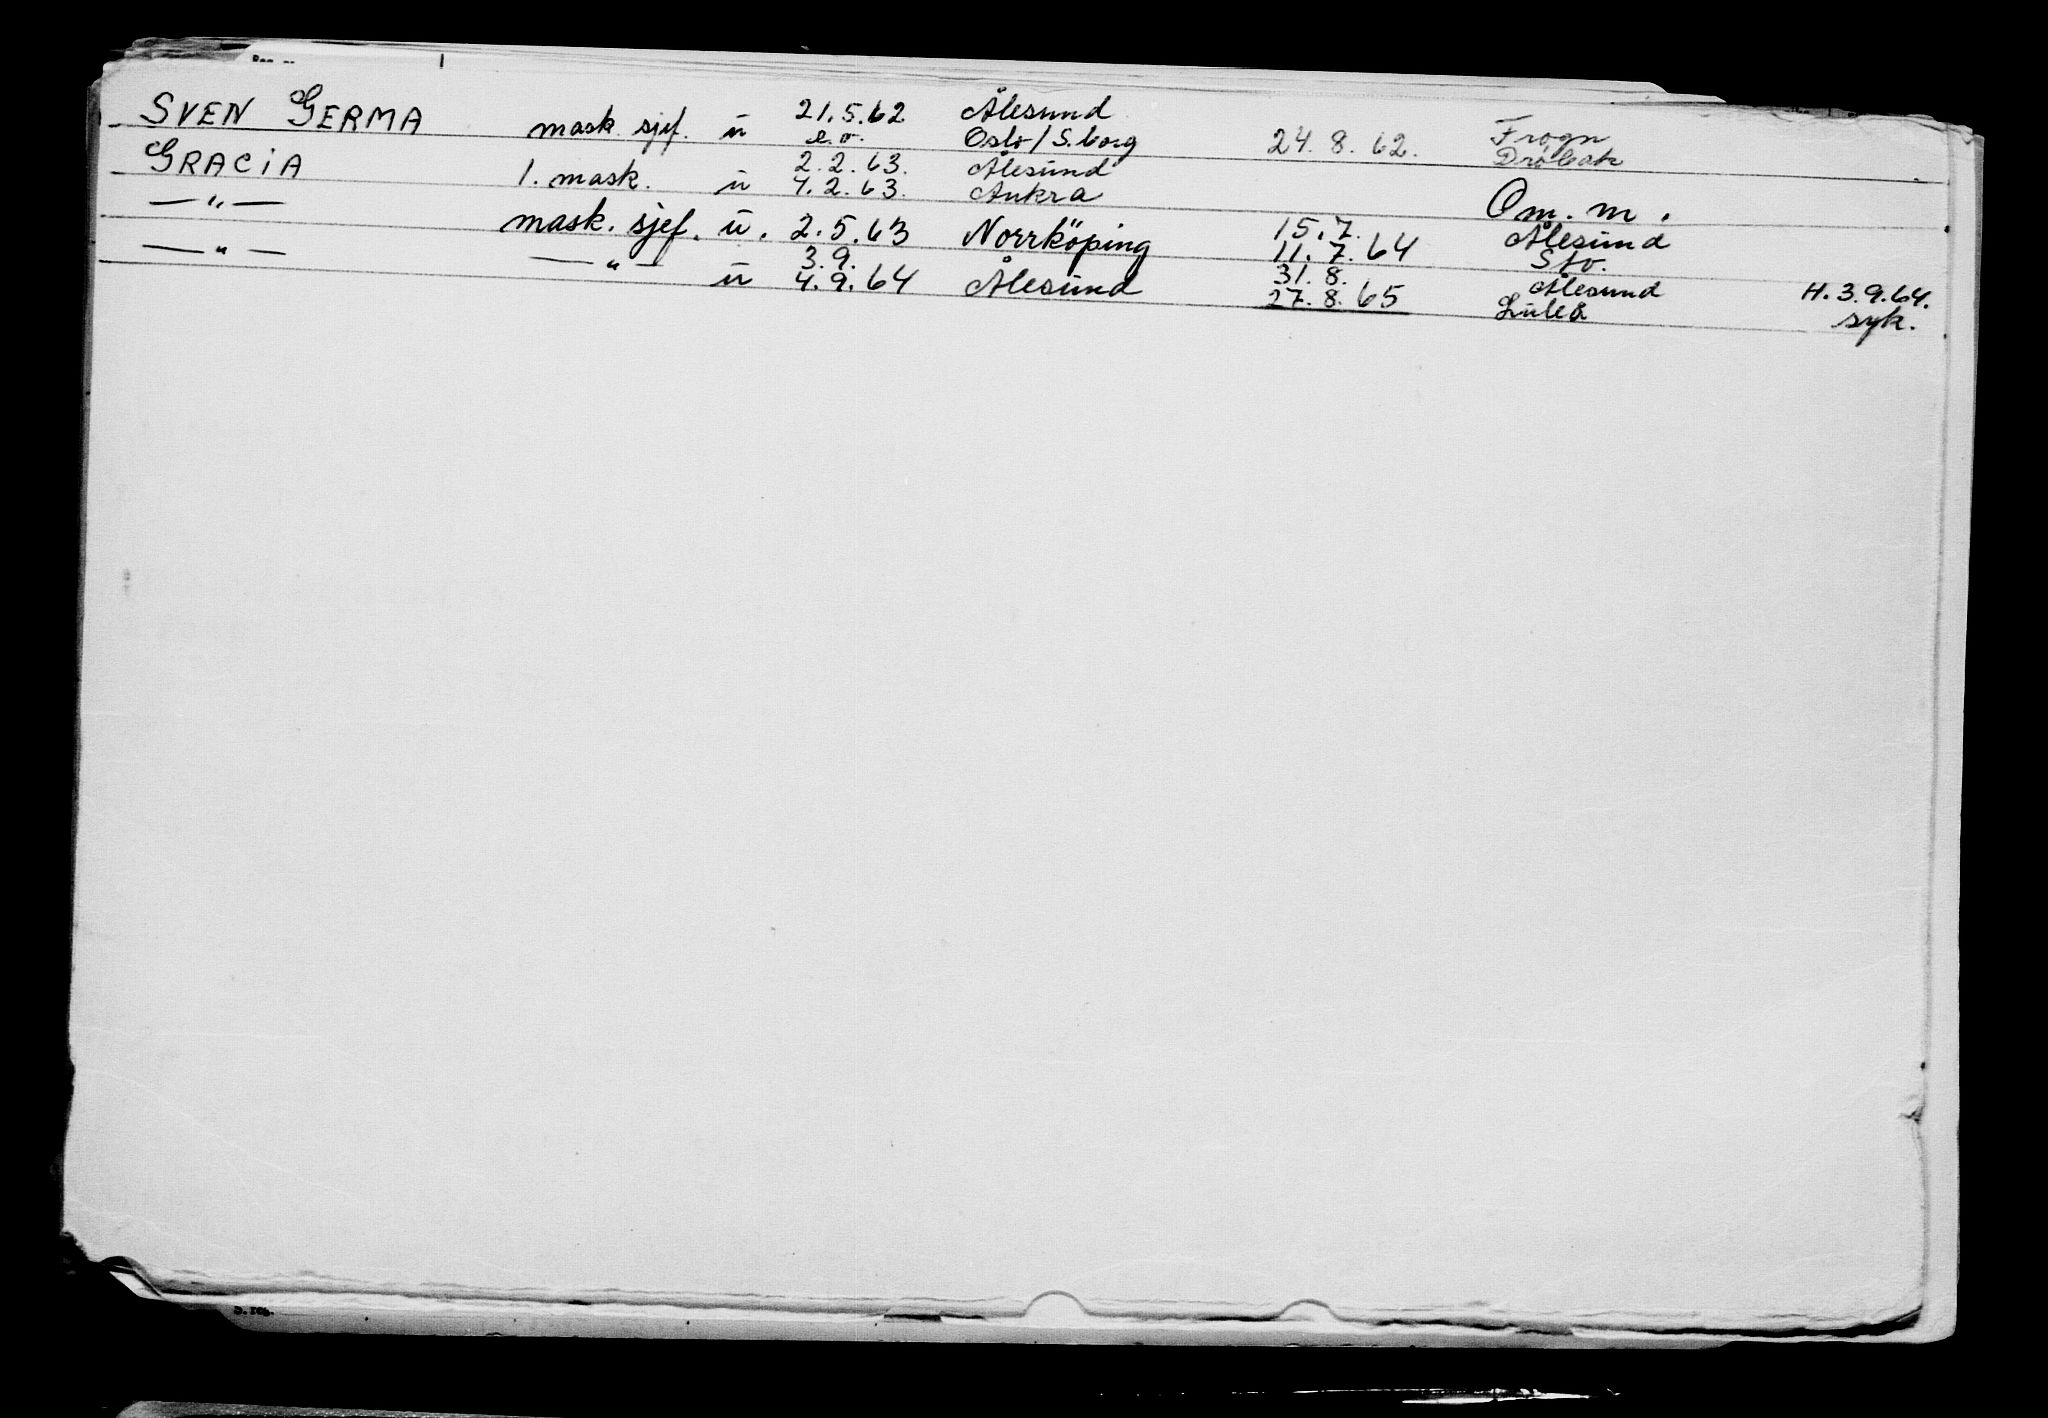 SVEN GERMA mask. sjef. u 21.5.62 Ålesund
e.o. Oslo/S.borg 24.8.62. Frogn
Drøbak
GRACIA 1. mask. u 2.2.63. Ålesund
4.2.63. Aukra Om. m.
—"— mask. sjef. u. 2.5.63 Norrköping 15.7. Ålesund
11.7.64 Sto.
—"— —"— u 3.9. 31.8. Ålesund H. 3.9.64.
4.9.64 Ålesund 27.8.65 Luleå syk.
S. reg.